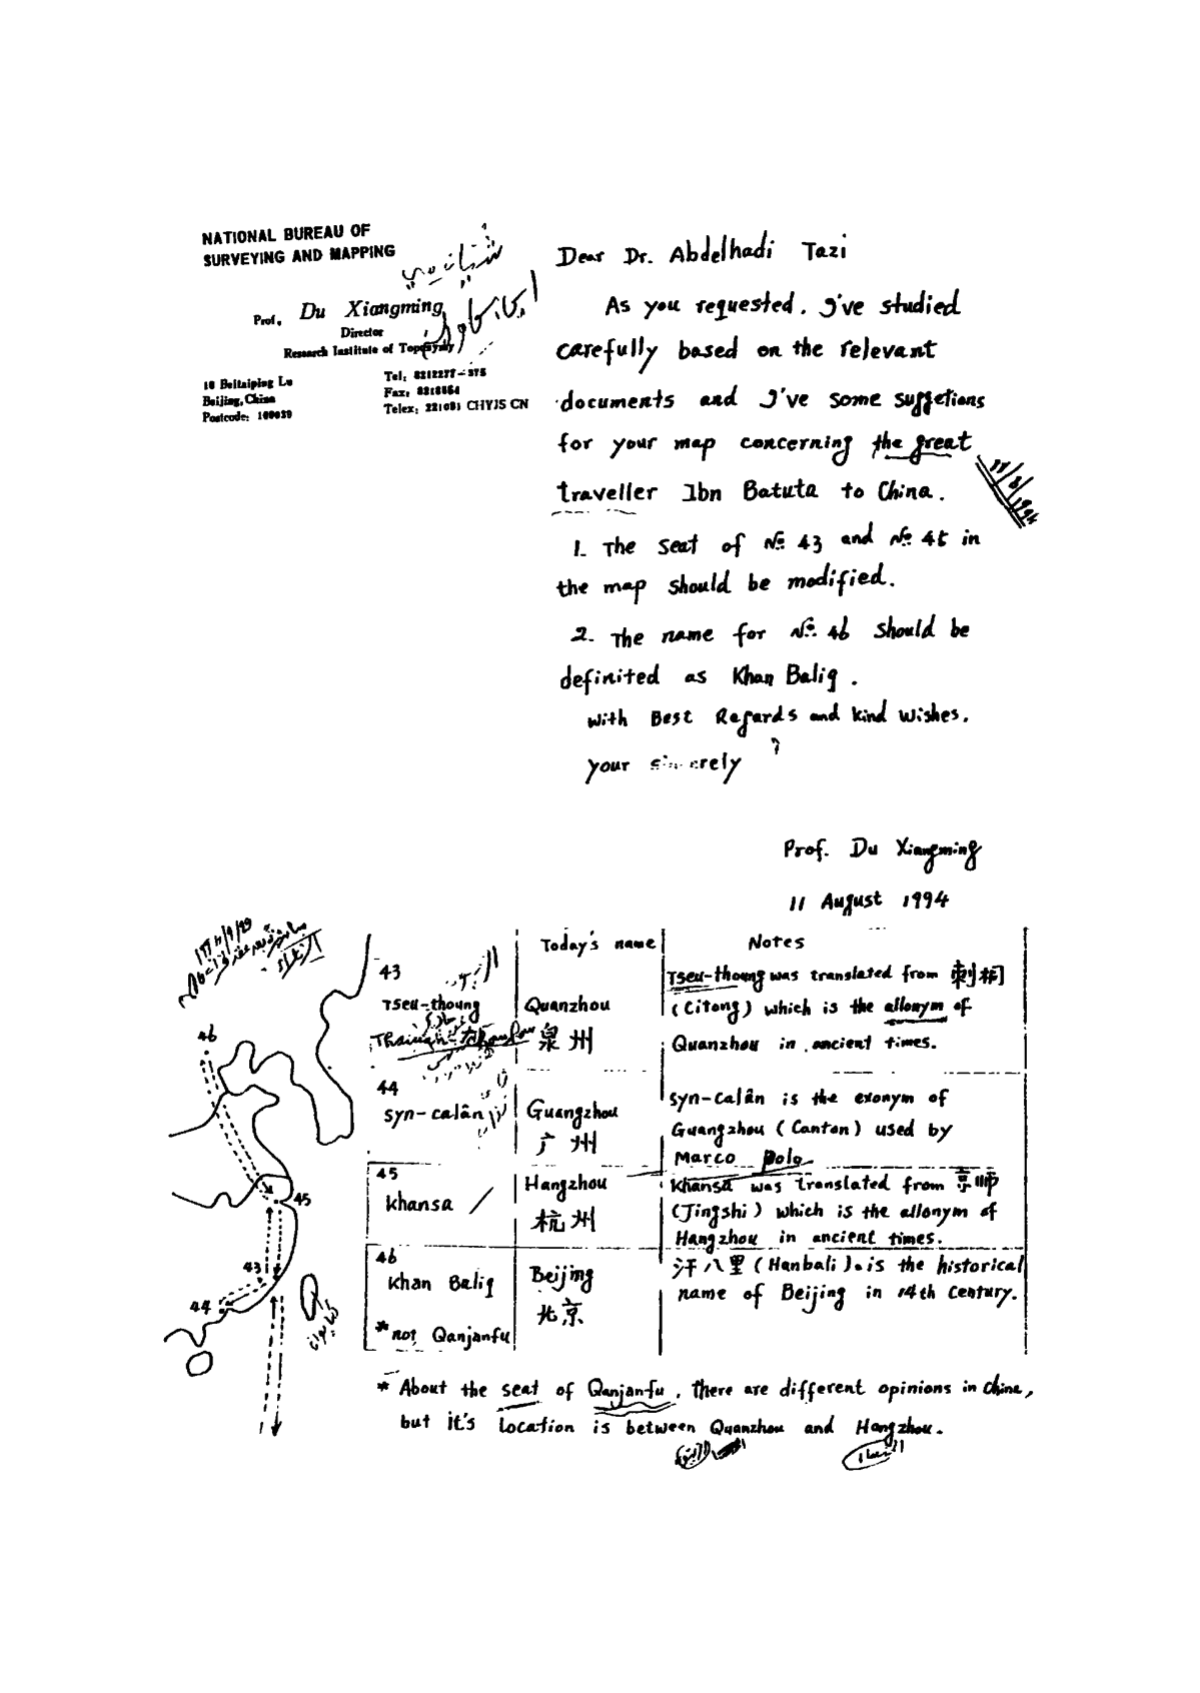 NATIONAL BUREAU OF
SURVEYING AND MAPPING
Prof. Du Xiangming
Director
Research Institute of
10 Beitaiping Lu
Beijing, China
Postcode: 100039
Tel: 8212277-375
Fax:
Telex: CHYJS CN
Dear Dr. Abdelhadi Tazi
As you requested. I've studied
carefully based on the relevant
documents and I've some suggetions
for your map concerning the great
traveller Ibn Batuta to China.
11/8/1994
1. The seat of № 43 and № 45 in
the map should be modified.
2. The name for № 46 should be
definited as Khan Baliq.
With Best Regards and kind wishes.
your sincerely
Prof. Du Xiangming
11 August 1994
46
45
43
44
Today's name
Notes
43
Tseu-thoung
Quanzhou
泉州
Tseu-thoung was translated from 刺桐
(Citong) which is the allonym of
Quanzhou in ancient times.
44
Syn-calân
Guangzhou
广州
Syn-calân is the exonym of
Guangzhou (Canton) used by
Marco Polo
45
Khansa
Hangzhou
杭州
Khansa was translated from 京师
(Jingshi) which is the allonym of
Hangzhou in ancient times.
46
Khan Baliq
*not Qanjanfu
Beijing
北京
汗八里 (Hanbali) is the historical
name of Beijing in 14th century.
* About the seat of Qanjanfu, there are different opinions in China,
but it's location is between Quanzhou and Hangzhou.